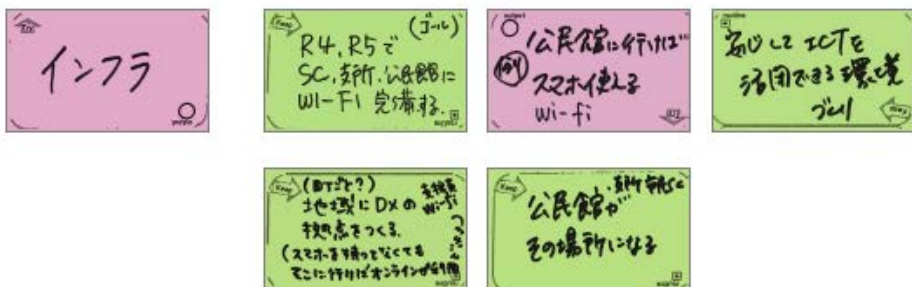 インフラ
(ゴール)
R4.R5で
SC.支所.公民館に
WI-FI 完備する.
公民館に行けば
例
スマホ使える
wi-fi
安心してICTを
活用できる環境
づくり
(町ごと?)
地域にDXの
拠点をつくる.
wi-fi
(スマホを持ってなくても
そこに行けばオンラインが
支所
公民館が
その場所になる